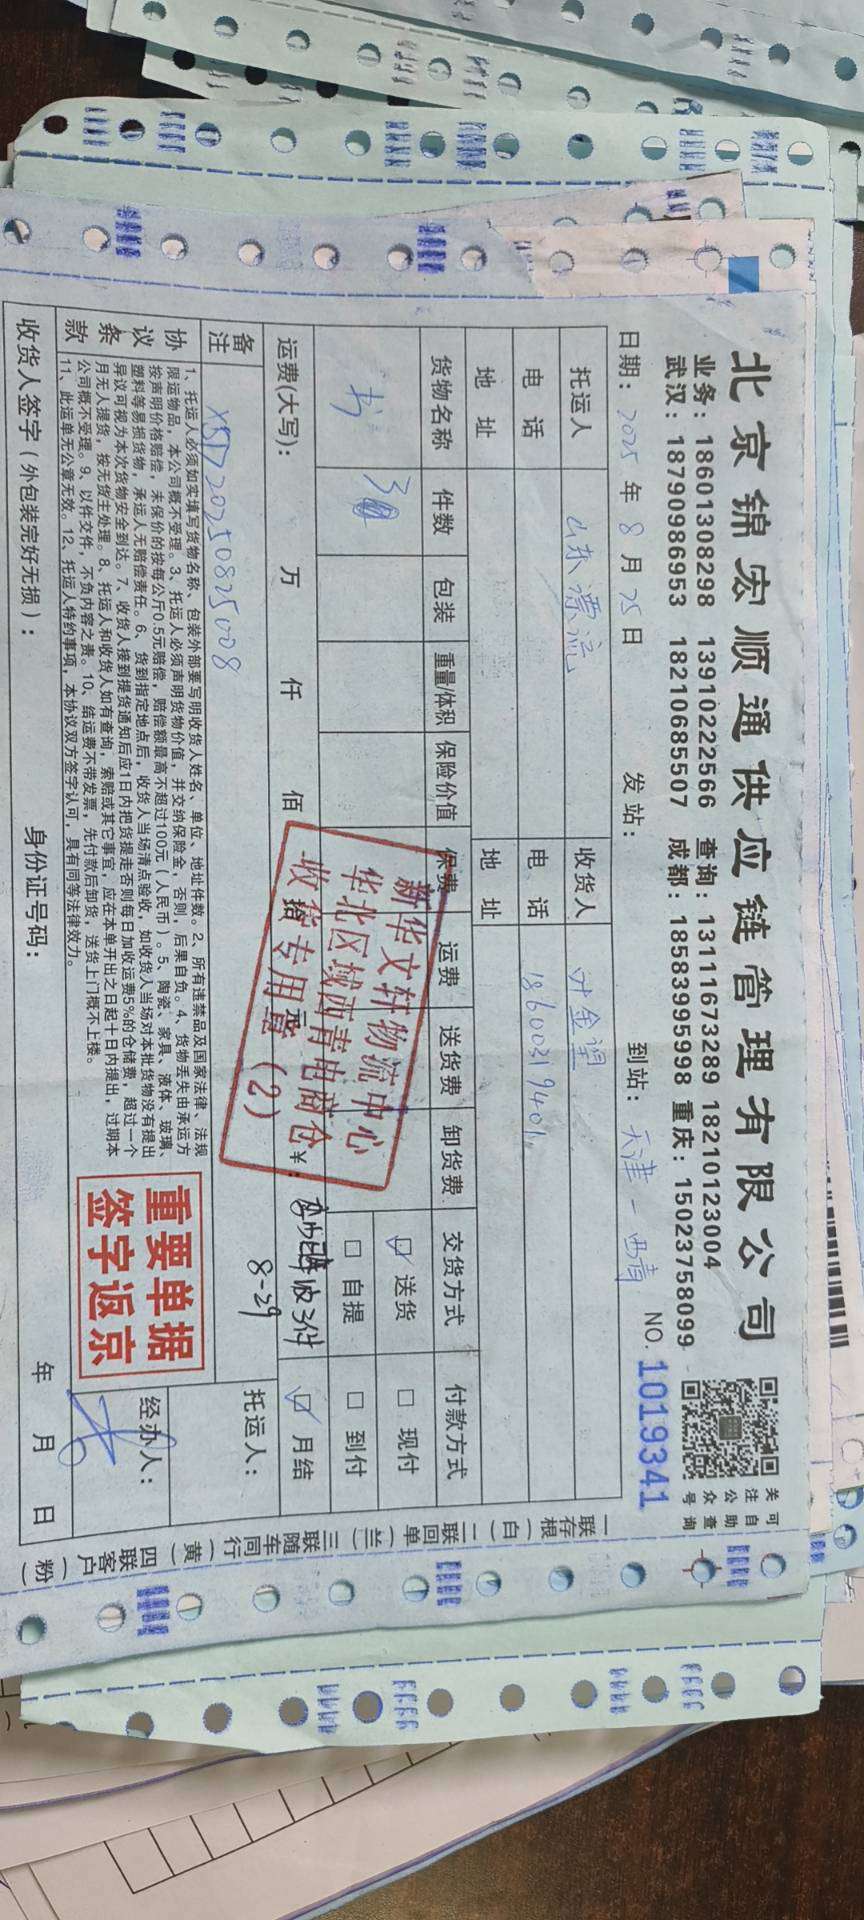 北京锦宏顺通供应链管理有限公司
业务：18601308298 13910222566 查询：13111673289 18210123004
武汉：18790986953 18210685507 成都：18583995998 重庆：15023758099
关注公众号
可自助查询
日期：2025年8月25日 发站： 到站：天津-西青 NO.1019341
托运人 山东漂流 收货人 叶金谓
电话 电话 18600319401
地址 地址
货物名称 件数 包装 重量/体积 保险价值 保费 运费 送货费 卸货费 交货方式 付款方式
书 3 ☑送货 □现付
□自提 □到付
运费(大写)： 万 仟 佰 拾 元 ¥： 3件 ☑月结
新华文轩物流中心
华北区域西青电商仓
收货专用章（2）
备注 XSD20250825008 8-29 托运人：
协议条款
1、托运人必须如实填写货物名称、包装外部要写明收货人姓名、单位、地址件数。2、所有违禁品及国家法律、法规
限运物品，本公司概不受理。3、托运人必须声明货物价值，并交纳保险金，否则，后果自负。4、货物丢失由承运方
按声明价格赔偿，未保价的按每公斤0.5元赔偿，赔偿额最高不超过100元（人民币）。5、陶瓷、家具、液体、玻璃、
塑料等易损货物，承运人无赔偿责任。6、货到指定地点后，收货人当场清点验收，如收货人当场对本批货物没有提出
异议可视为本次货物安全到达。7、收货人接到提货通知后应1日内把货提走否则每日加收运费5%的仓储费，超过一个
月无人提货，按无货主处理。8、托运人和收货人如有查询，索赔或其它事宜，应在本单开出之日起十日内提出，过期本
公司概不受理。9、以件交件，不负内容之责。10、结运费不带发票，先付款后卸货，送货上门概不上楼。
11、此运单无公章无效。12、托运人特约事项，本协议双方签字认可，具有同等法律效力。
重要单据
签字返京
经办人：
收货人签字（外包装完好无损）： 身份证号码： 年 月 日
一联存根（白） 二联回单（兰） 三联随车同行（黄） 四联客户（粉）